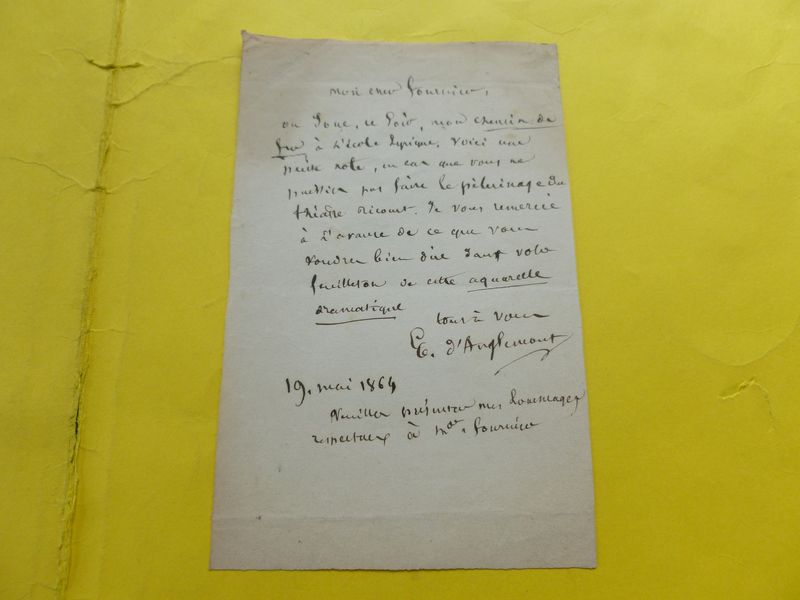 mon cher Fournier,
on joue, ce soir, mon chemin de
fer à l'École Lyrique. Voici une
petite note, en cas que vous ne
puissiez pas faire le pèlerinage du
théâtre Ricourt. Je vous remercie
à l'avance de ce que vous
voudrez bien dire dans votre
feuilleton de cette aquarelle
dramatique
tout à vous
E. d'Anglemont
19. mai 1864
Veuillez présenter mes hommages
respectueux à Mme Fournier